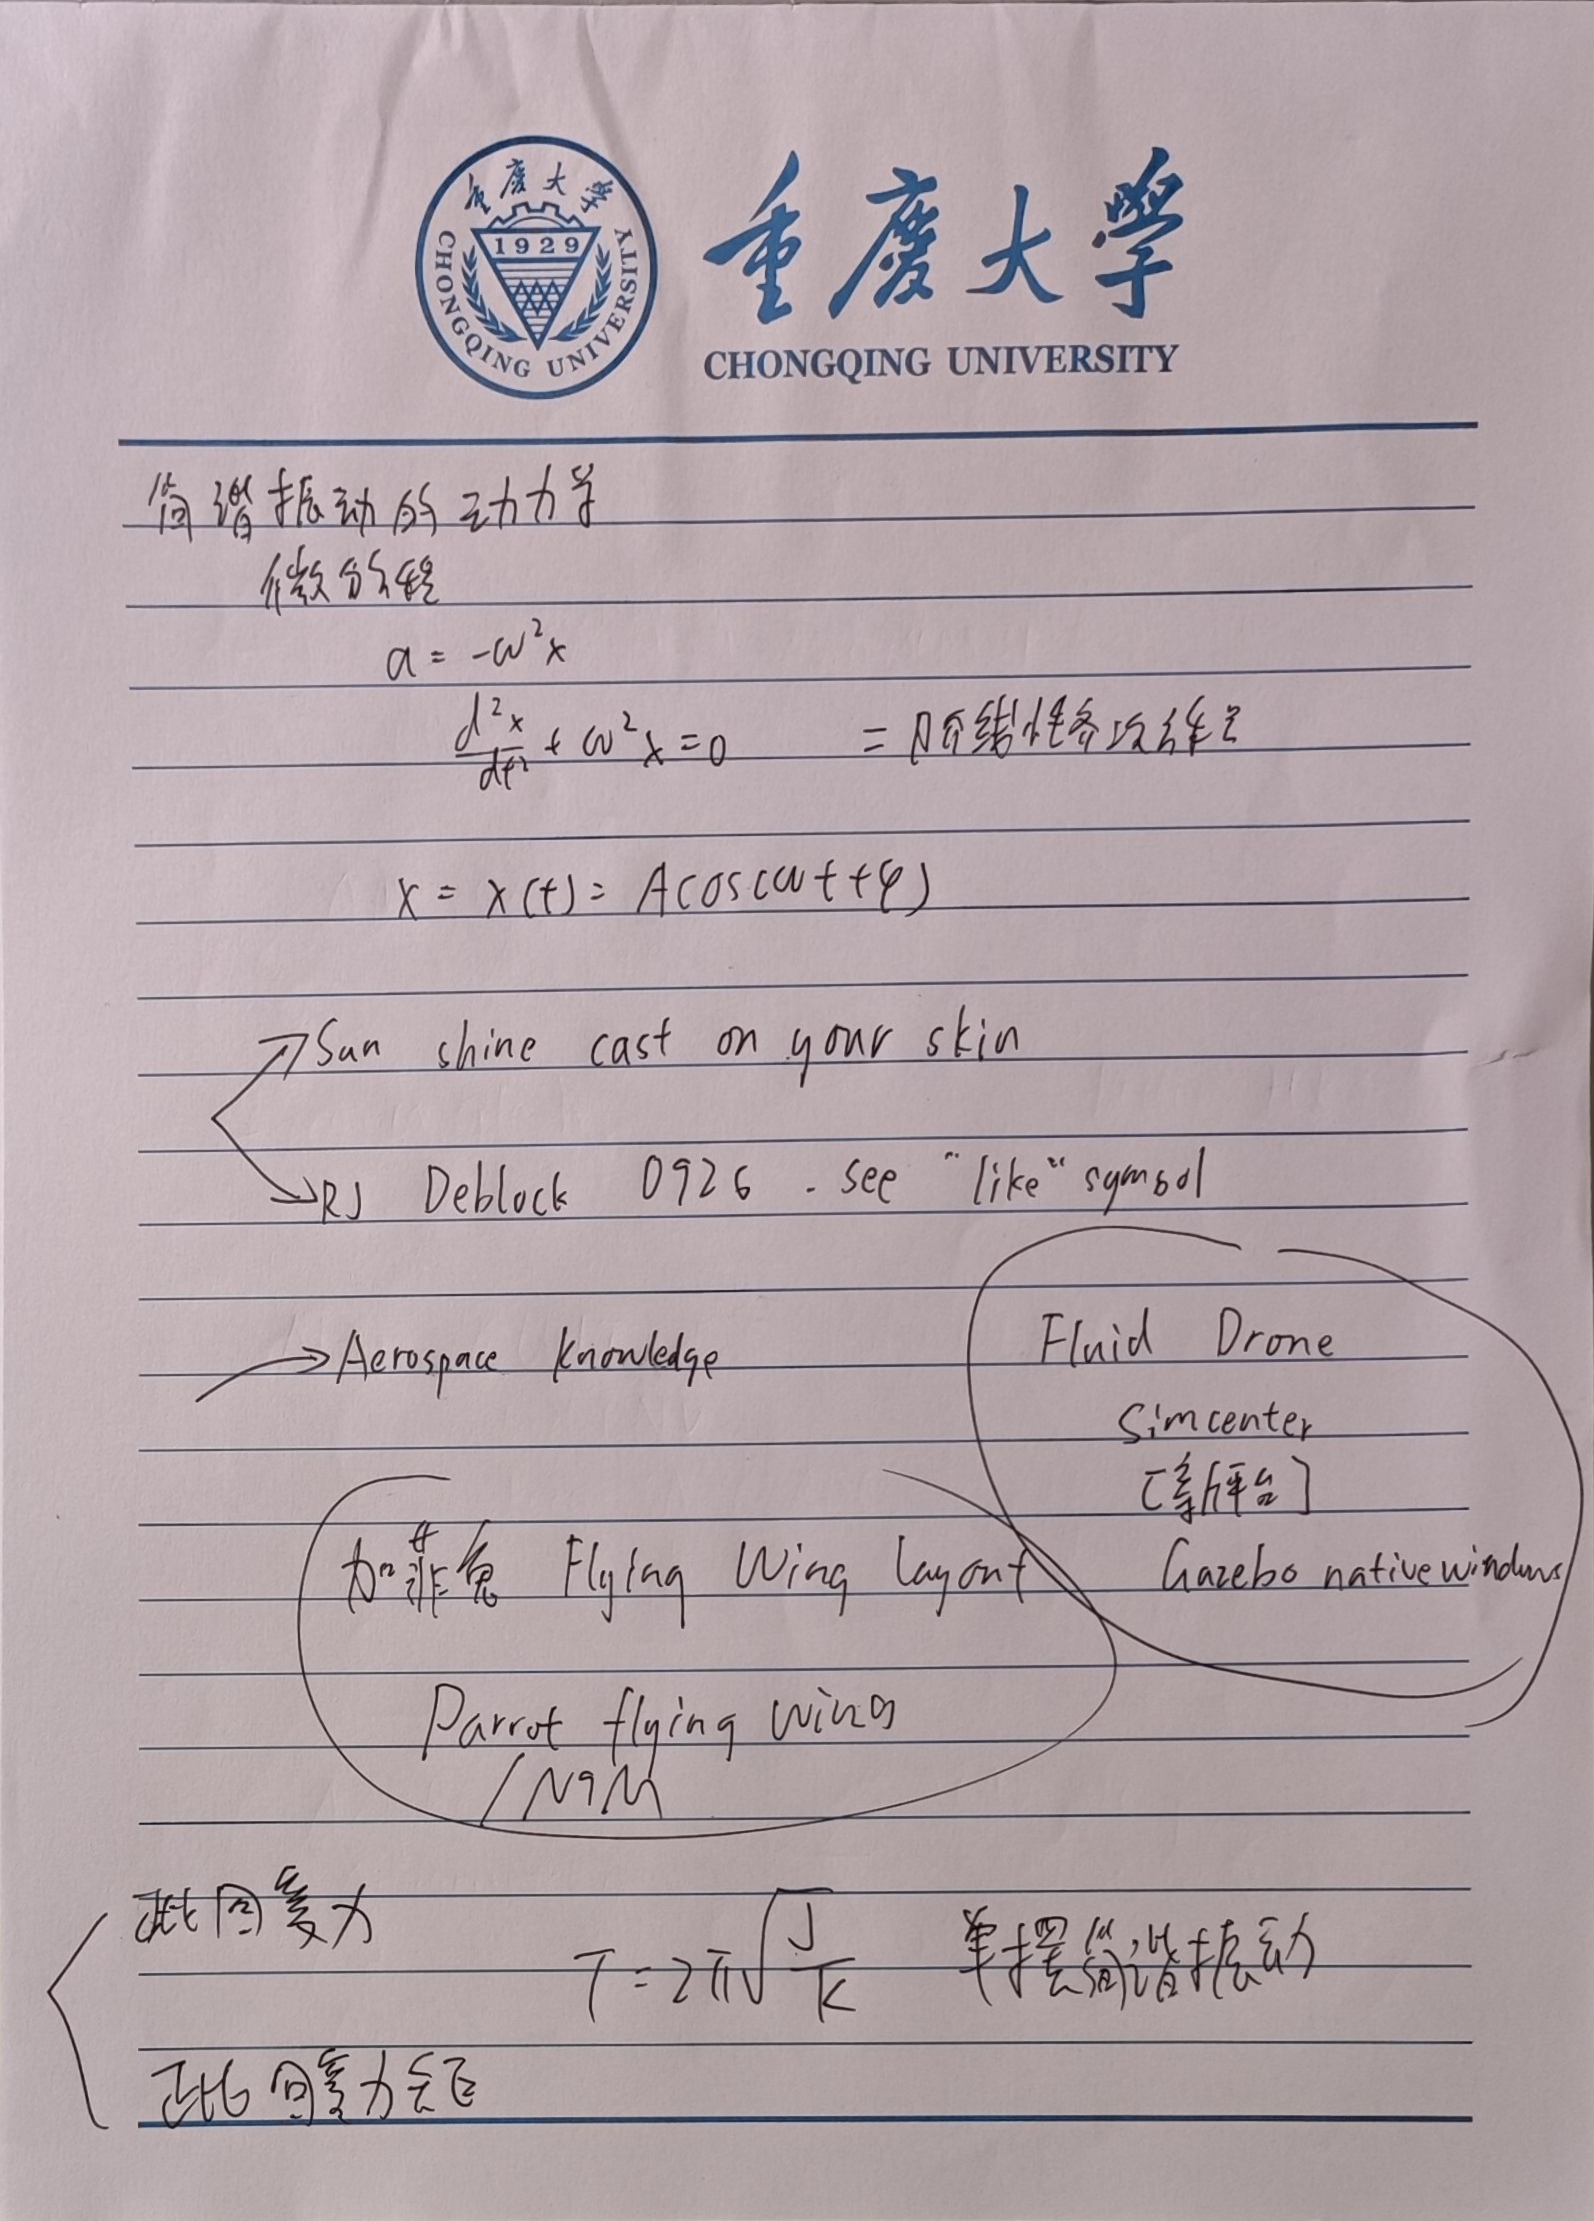 重慶大學
1929
CHONGQING UNIVERSITY
重慶大學
CHONGQING UNIVERSITY
简谐振动的动力学
微分方程
a = -ω²x
d²x/dt² + ω²x = 0 二阶线性齐次方程
x = x(t) = Acos(ωt+φ)
Sun shine cast on your skin
RJ Deblock 0926 - see "like" symbol
Aerospace knowledge
Fluid Drone
Simcenter
[平台]
Gazebo native windows
加菲兔 Flying Wing layout
Parrot flying wing
/N9M
回复力
T = 2π√(J/K) 单摆简谐振动
回复力矩